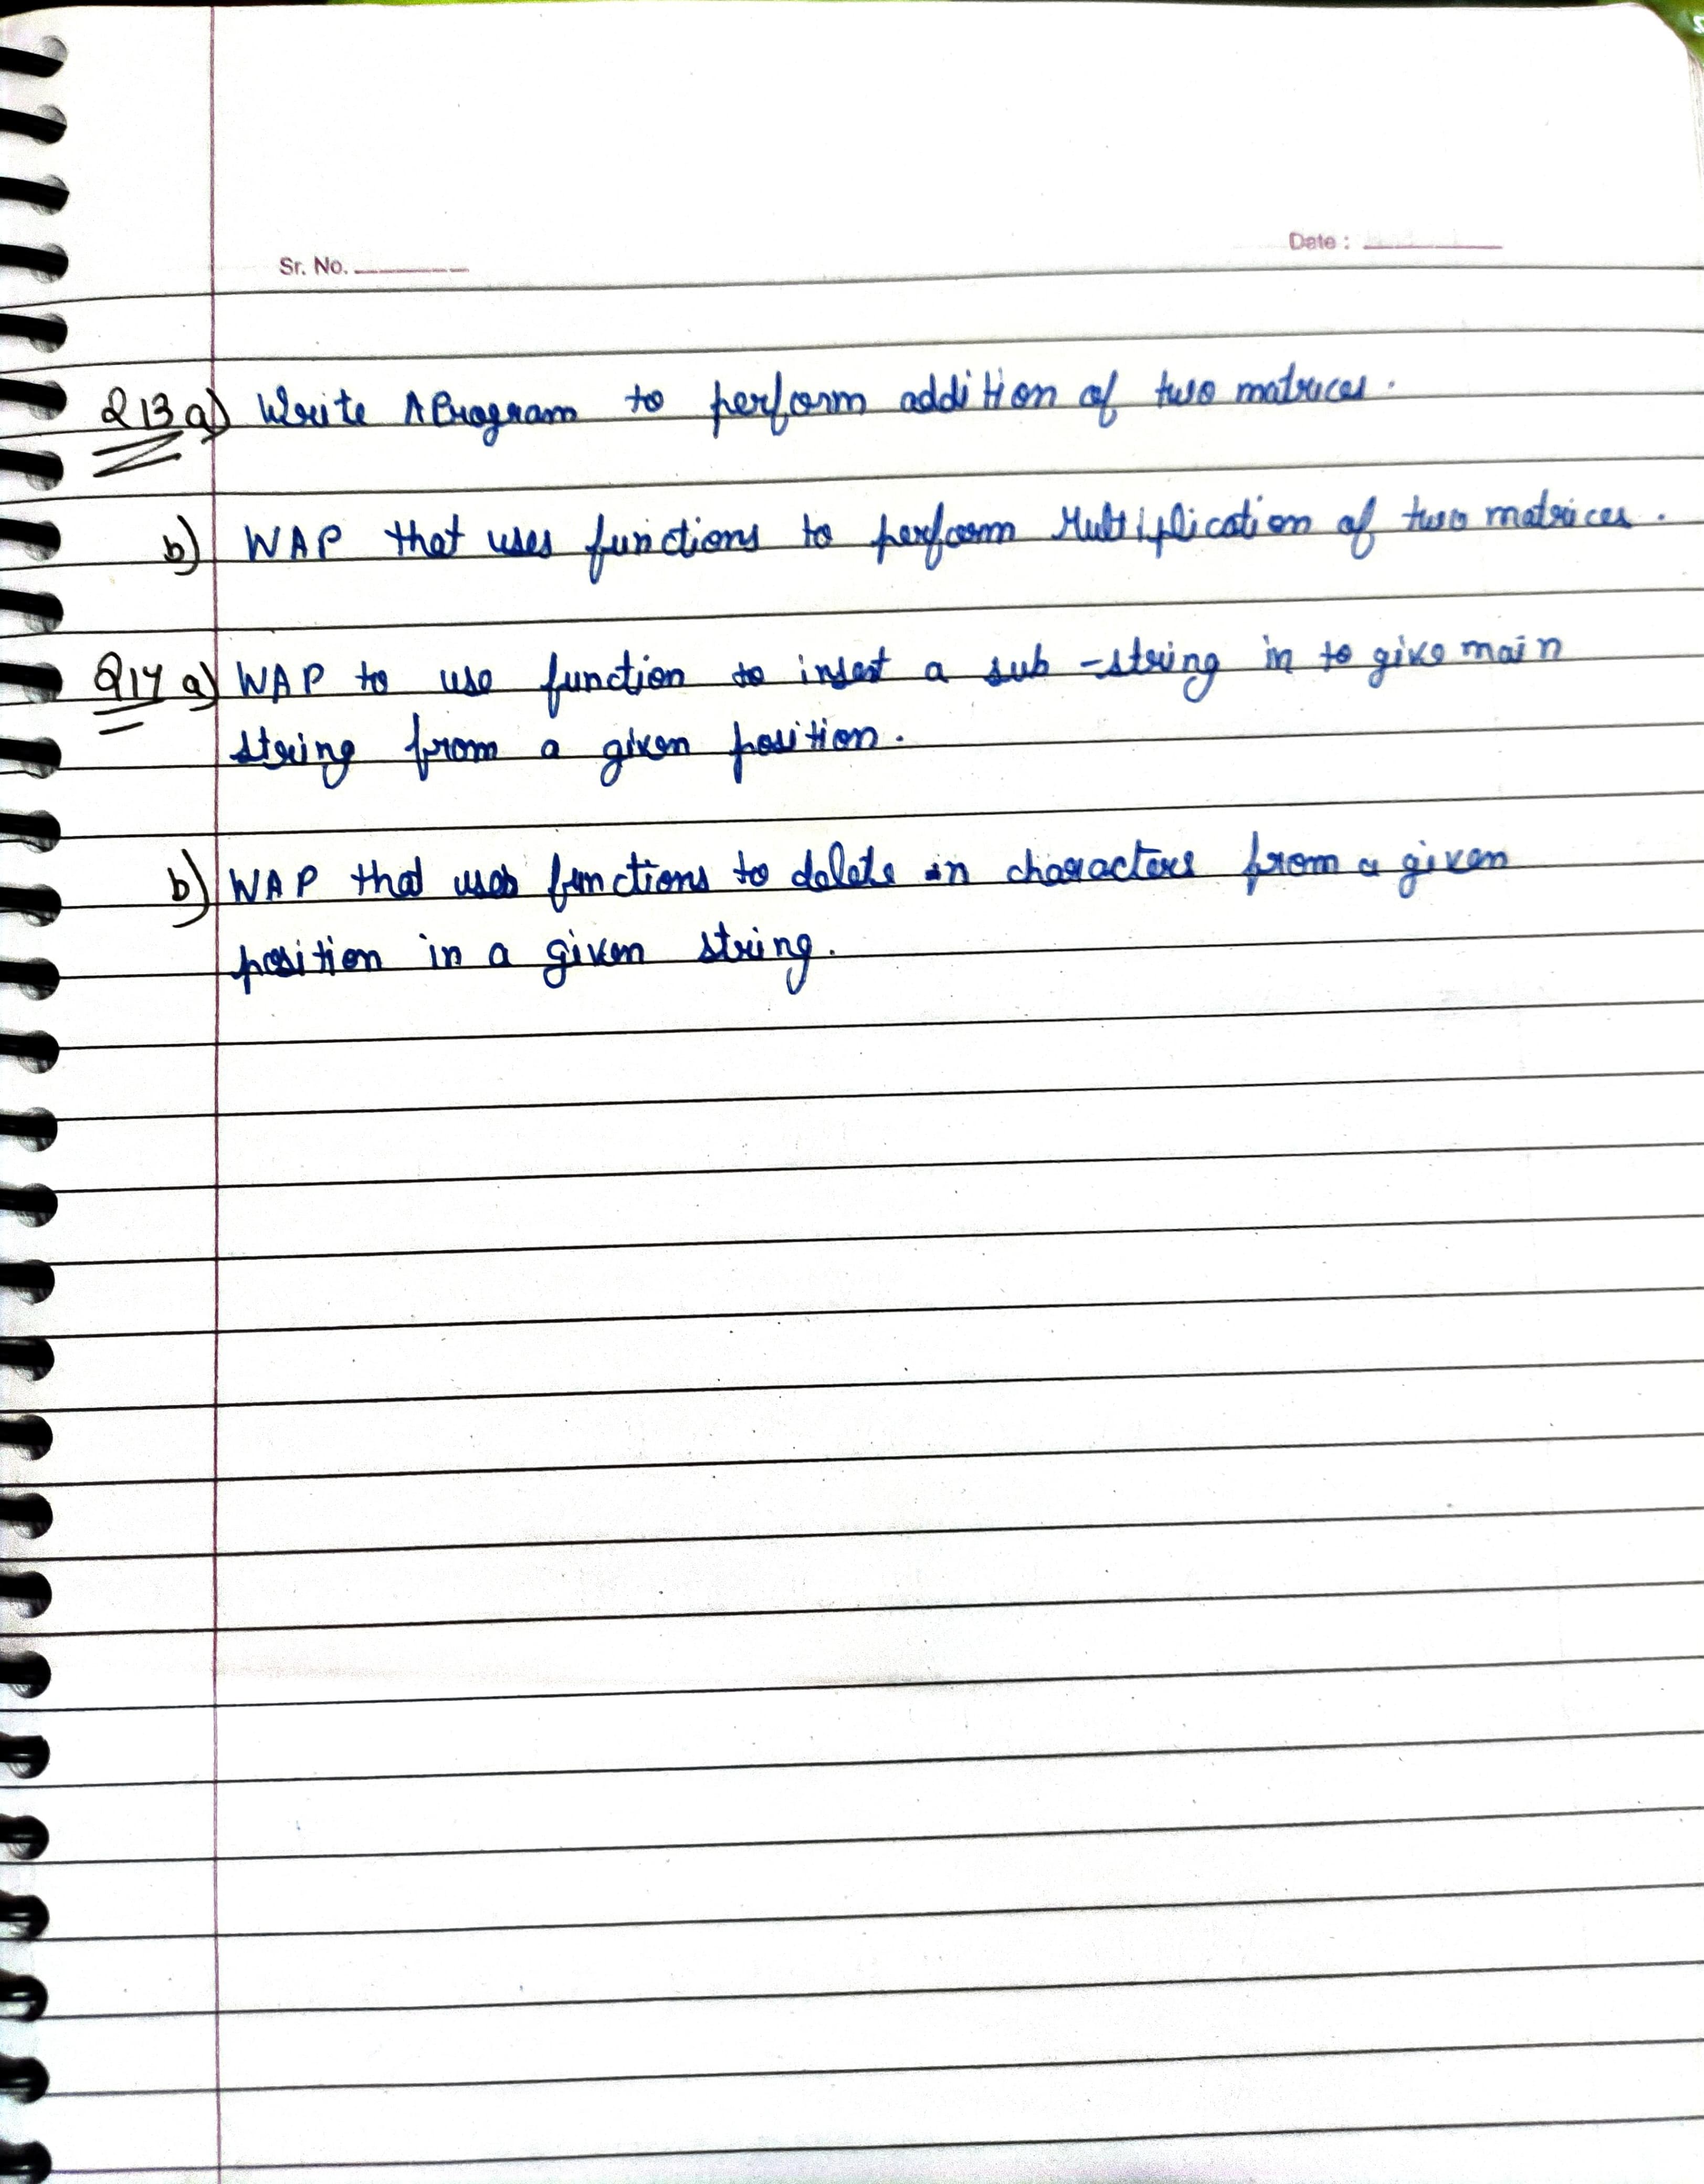 Sr. No.
Date :
Q13 a) Write A Program to perform addition of two matrices.
b) WAP that uses functions to perform Multiplication of two matrices.
Q14 a) WAP to use function to insert a sub-string in to give main
string from a given position.
b) WAP that uses functions to delete n characters from a given
position in a given string.